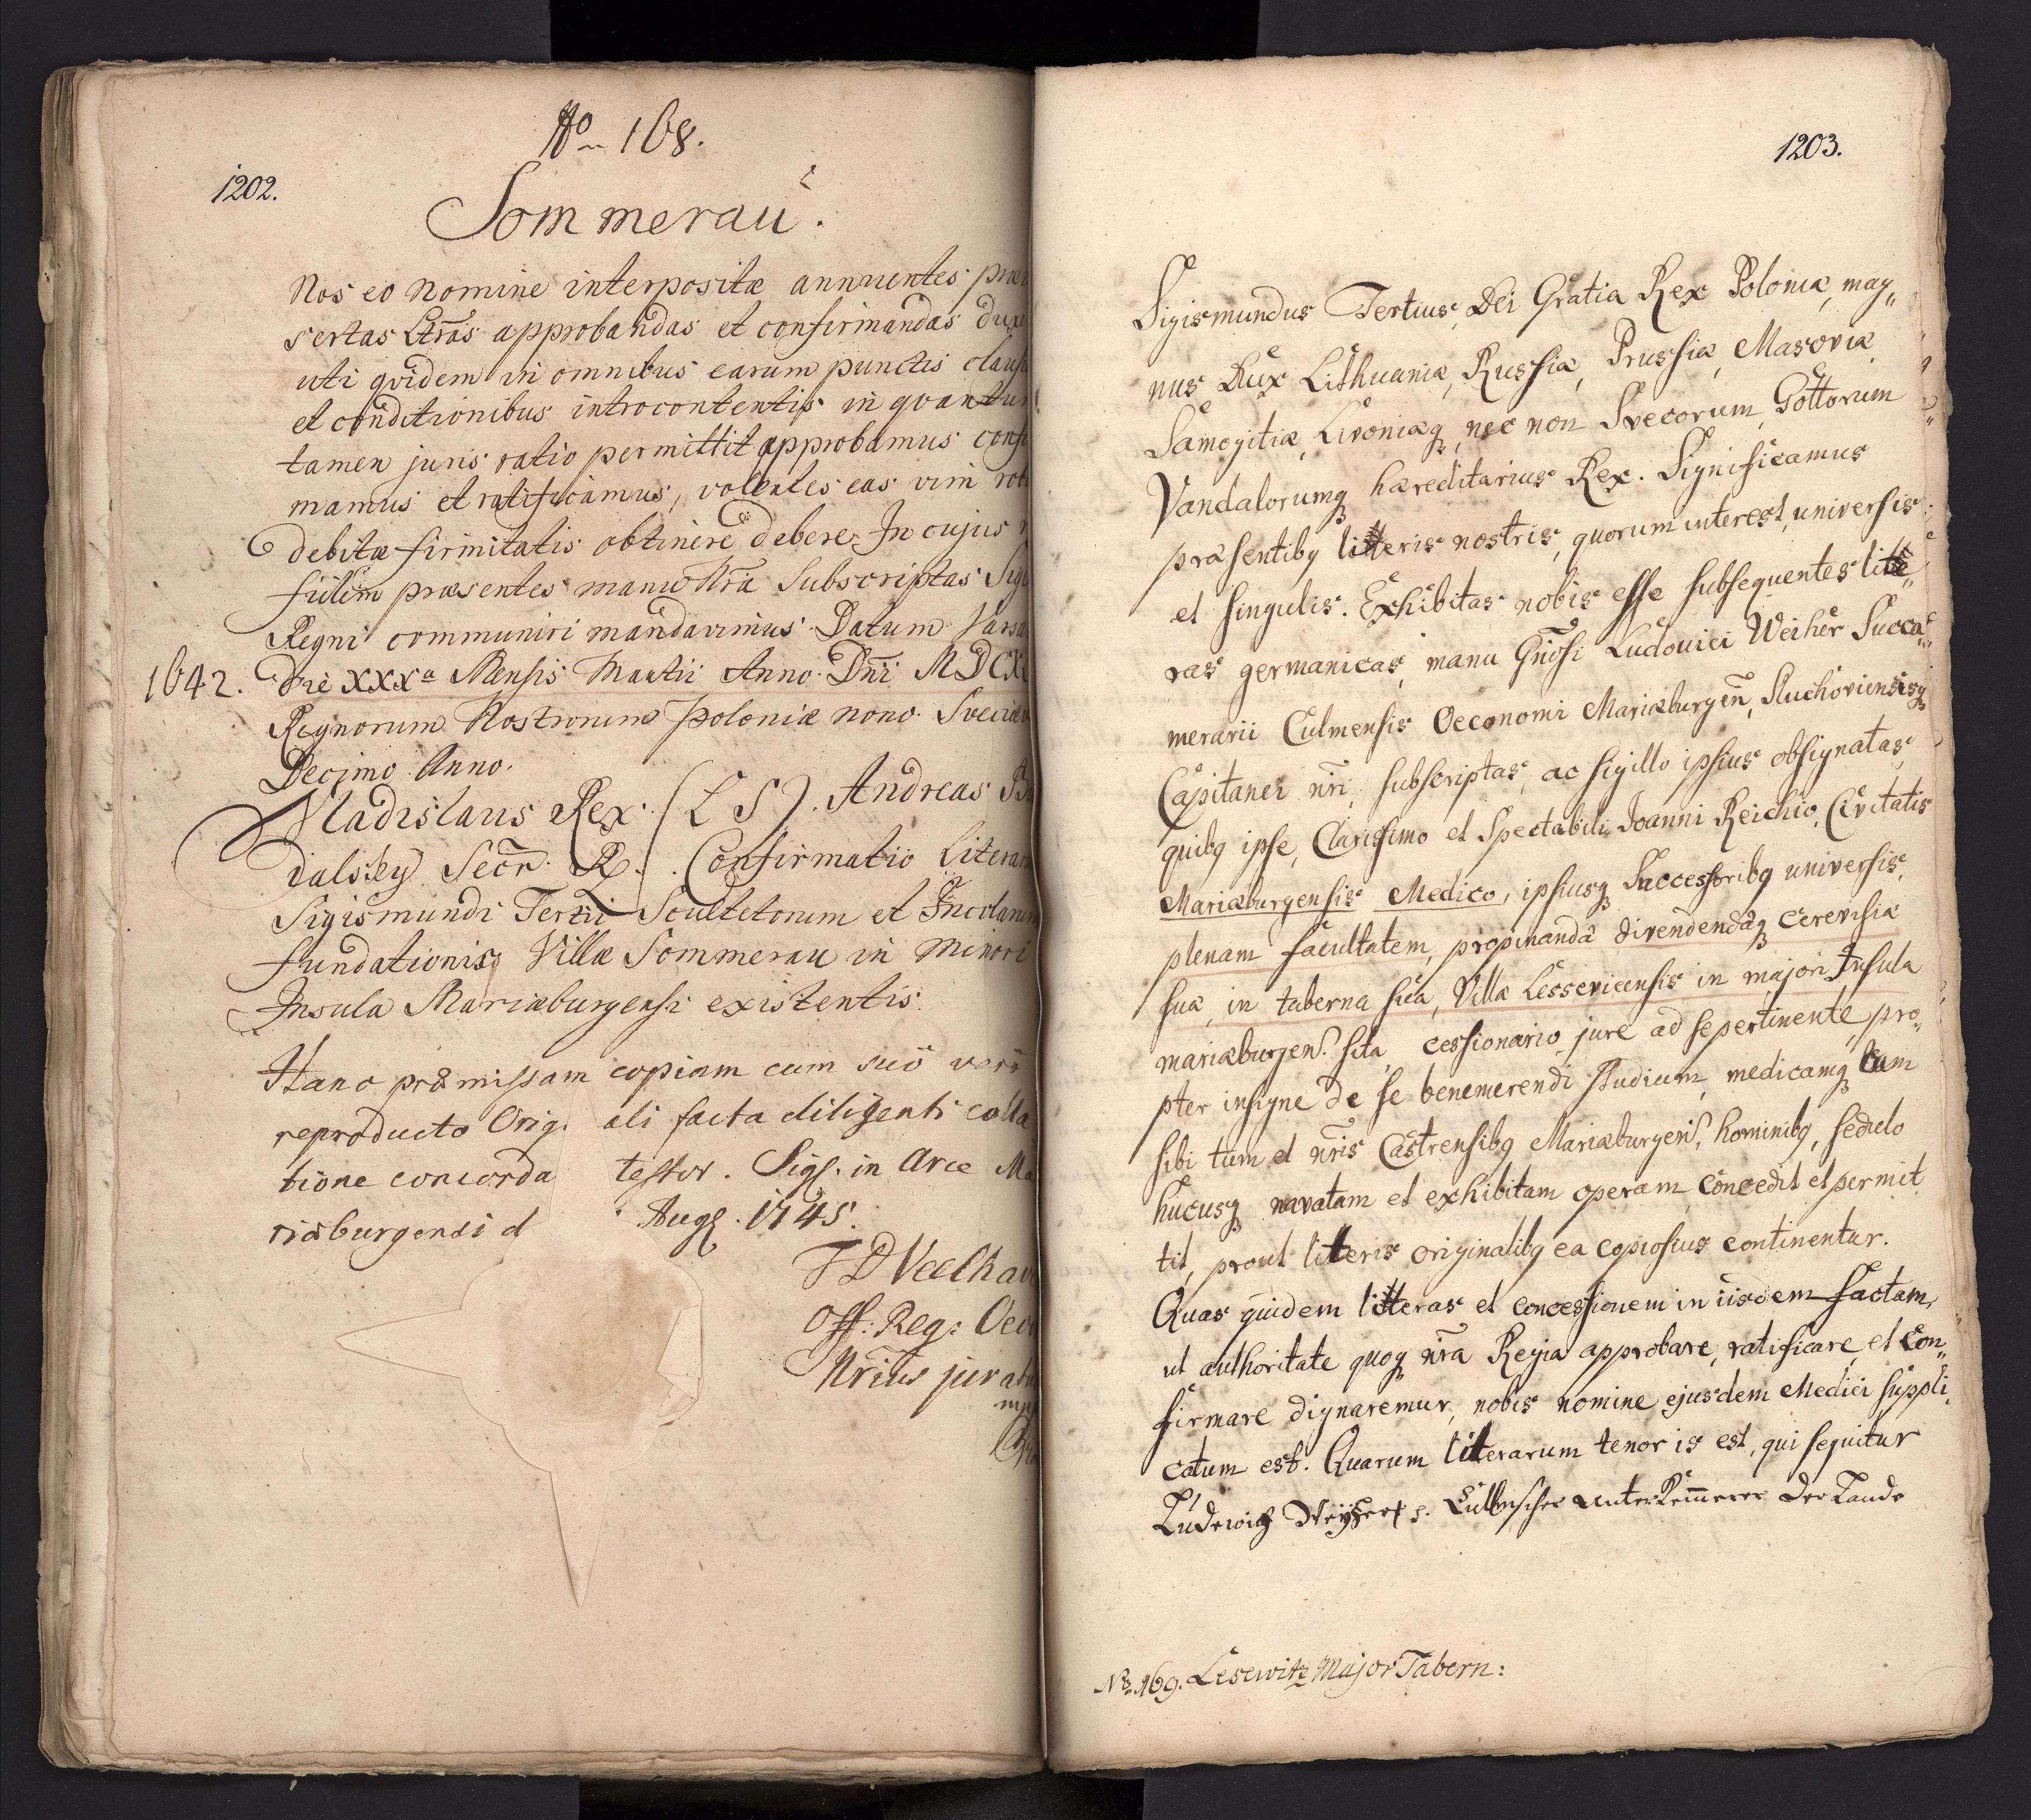 No 168.
1202.
Sommerau.
Nos eo nomine interpositæ annuentes præ
sertas Ltras approbandas et confirmandas dux
uti qvidem in omnibus earum punctis clausu
et conditionibus introcontentis in qvantum
tamen juris ratio permittit approbamus confi
mamus et ratificamus, volentes eas vim rob
debitæ firmitatis obtinere debere. In cujus r
fidem præsentes manu Nra Subscriptas Sigi
Regni communiri mandavimus. Datum Varsa
1642. Die XXXa Mensis Martii Anno Dni MDCX
Regnorum Nostrorum Poloniæ nono. Sveciæ v
Decimo Anno.
Vladislaus Rex. (L S). Andreas
dalsky Secr. R. Confirmatio Literaru
Sigismundi Tertii Scultetorum et Incolarum
fundationisq Villæ Sommerau in Minori
Insula Mariæburgensi existentis.
Hanc præmissam copiam cum suo vero
reproducto Orig ali facta diligenti colla
tione concorda testor. Sigl. in Arce Ma
riæburgensi d Augl. 1745.
Off: Reg: Oeco
Nrius jurat
mp
1203.
Sigismundus Tertius, Dei Gratia Rex Poloniæ, mag„
nus Dux Lithuaniæ, Russiæ, Prussiæ, Masoviæ,
Samogitiæ, Livoniæq, nec non Svecorum, Gottorum
Vandalorumq hæreditarius Rex. Significamus
præsentibq litteris nostris, quorum interest, universis
et singulis. Exhibitas nobis esse subsequentes litte„
ras germanicas, manu Gnosi Ludovici Weiher Succa„
merarii Culmensis Oeconomi Mariæburgen, Puchoviensisq
Capitanei nri, subscriptas, ac sigillo ipsius obsignatas,
quibq ipse, Clarissimo et Spectabili Joanni Reichio, Civitatis
Mariæburgensis Medico, ipsiusq Successoribq universis,
plenam facultatem, propinandæ divendendæq Cerevisiæ
suæ, in taberna sua, Villæ Lessevicensis in majori Insula
mariæburgen. sita, cessionario jure ad se pertinente, pro„
pter insigne de se benemerendi studium, medicamq cum
sibi tum et nris Castrensibq Mariæburgen. hominibq, sedulo
hucusq navatam et exhibitam operam, concedit et permit
tit, prout litteris originalibq ea copiosius continentur.
Quas quidem litteras et concessionem in iisdem factam,
ut authoritate quoq nra Regia approbare, ratificare, et Con„
firmare dignaremur, nobis nomine ejusdem Medici suppli„
catum est. Quarum literarum tenor is est, qui sequitur
Ludewich Weyher Culmscher Unter Kemmerer der Lande
No. 169. Lesewitz Major Tabern: